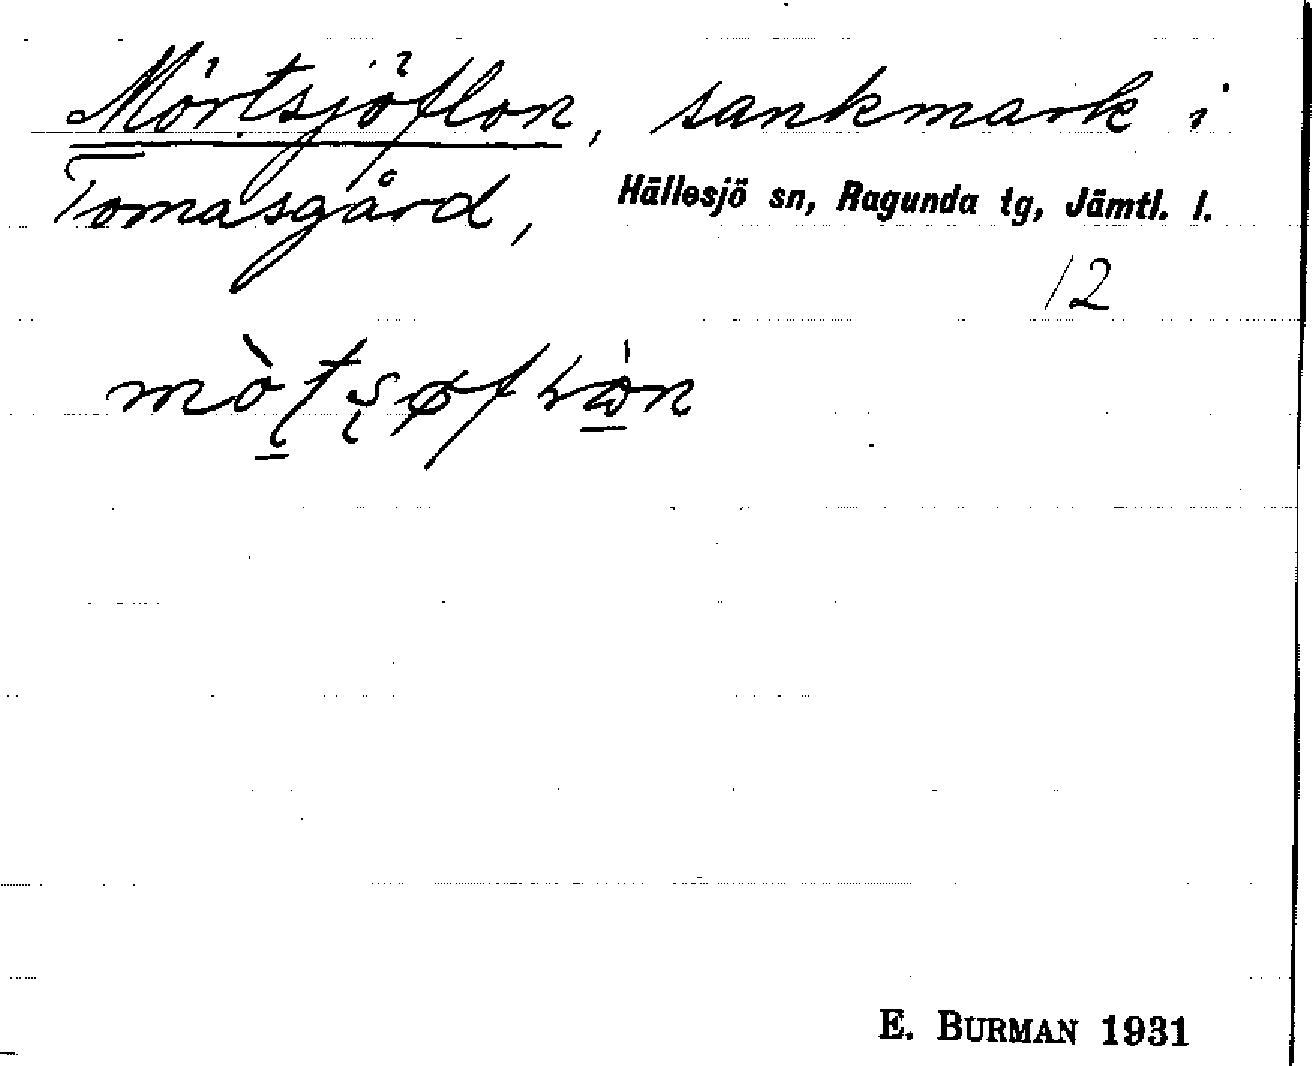 Mörtsjöflon, sankmark i
Tomasgård, Hällesjö sn, Ragunda tg, Jämtl. l.
12
E. BURMAN 1931